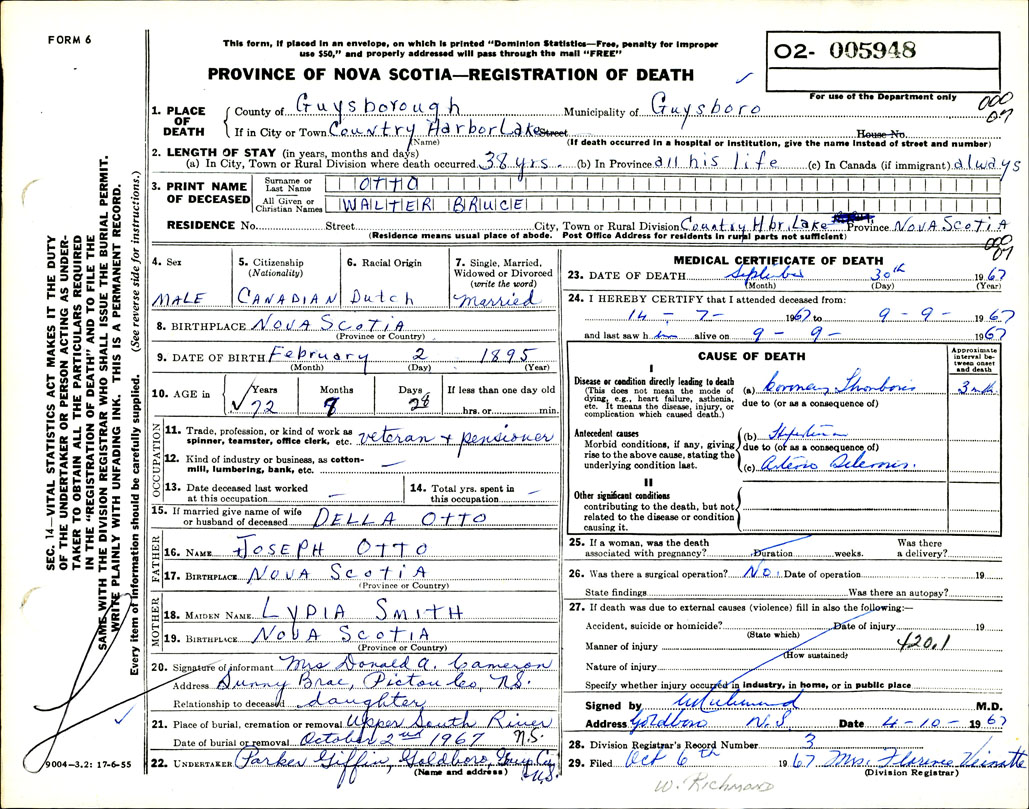 FORM 6
This form, if placed in an envelope, on which is printed "Dominion Statistics—Free, penalty for improper
use $50," and properly addressed will pass through the mail "FREE"
02- 005948
PROVINCE OF NOVA SCOTIA—REGISTRATION OF DEATH
For use of the Department only
000
07
1. PLACE OF DEATH
County of Guysborough Municipality of Guysboro
If in City or Town Country Harbor Lake Street House No.
(Name) (If death occurred in a hospital or institution, give the name instead of street and number)
2. LENGTH OF STAY (in years, months and days)
(a) In City, Town or Rural Division where death occurred 38 yrs. (b) In Province all his life (c) In Canada (if immigrant) always
3. PRINT NAME OF DECEASED
Surname or Last Name OTTO
All Given or Christian Names WALTER BRUCE
RESIDENCE No. Street City, Town or Rural Division Country Hbr. Lake Province NOVA SCOTIA
(Residence means usual place of abode. Post Office Address for residents in rural parts not sufficient)
000
07
4. Sex
MALE
5. Citizenship
(Nationality)
CANADIAN
6. Racial Origin
Dutch
7. Single, Married,
Widowed or Divorced
(write the word)
Married
8. BIRTHPLACE NOVA SCOTIA
(Province or Country)
9. DATE OF BIRTH February 2 1895
(Month) (Day) (Year)
10. AGE in
Years
72
Months
Days
28
If less than one day old
hrs. or min.
OCCUPATION
11. Trade, profession, or kind of work as
spinner, teamster, office clerk, etc. veteran + pensioner
12. Kind of industry or business, as cotton-
mill, lumbering, bank, etc. —
13. Date deceased last worked
at this occupation —
14. Total yrs. spent in
this occupation —
15. If married give name of wife
or husband of deceased DELLA OTTO
FATHER
16. NAME JOSEPH OTTO
17. BIRTHPLACE NOVA SCOTIA
(Province or Country)
MOTHER
18. MAIDEN NAME LYDIA SMITH
19. BIRTHPLACE NOVA SCOTIA
(Province or Country)
20. Signature of informant Mrs Donald A. Cameron
Address Sunny Brae, Pictou Co, N.S.
Relationship to deceased daughter
21. Place of burial, cremation or removal Upper South River
N.S.
Date of burial or removal October 2nd 1967
22. UNDERTAKER Parker Giffin, Goldboro, Guy. Co.
N.S.
(Name and address)
MEDICAL CERTIFICATE OF DEATH
23. DATE OF DEATH September 30th 1967
(Month) (Day) (Year)
24. I HEREBY CERTIFY that I attended deceased from:
14 - 7 - 1967 to 9 - 9 - 1967
and last saw h im alive on 9 - 9 - 1967
CAUSE OF DEATH
Approximate
interval be-
tween onset
and death
I
Disease or condition directly leading to death
(This does not mean the mode of
dying, e.g., heart failure, asthenia,
etc. It means the disease, injury, or
complication which caused death.)
(a) Coronary Thrombosis
due to (or as a consequence of)
Antecedent causes
Morbid conditions, if any, giving
rise to the above cause, stating the
underlying condition last.
(b)
due to (or as a consequence of)
(c) Arterio Sclerosis.
II
Other significant conditions
contributing to the death, but not
related to the disease or condition
causing it.
25. If a woman, was the death
associated with pregnancy? Duration weeks.
Was there
a delivery?
26. Was there a surgical operation? No. Date of operation 19
State findings Was there an autopsy?
27. If death was due to external causes (violence) fill in also the following:—
Accident, suicide or homicide? Date of injury 19
(State which)
Manner of injury 420.1
(How sustained)
Nature of injury
Specify whether injury occurred in industry, in home, or in public place
Signed by M.D.
Address Goldboro N.S Date 4-10-1967
28. Division Registrar's Record Number 3
29. Filed Oct 6th 1967 Mrs. Florence
(Division Registrar)
W. RICHMOND
SEC. 14—VITAL STATISTICS ACT MAKES IT THE DUTY
OF THE UNDERTAKER OR PERSON ACTING AS UNDER-
TAKER TO OBTAIN ALL THE PARTICULARS REQUIRED
IN THE "REGISTRATION OF DEATH" AND TO FILE THE
SAME WITH THE DIVISION REGISTRAR WHO SHALL ISSUE THE BURIAL PERMIT.
WRITE PLAINLY WITH UNFADING INK. THIS IS A PERMANENT RECORD.
Every item of information should be carefully supplied. (See reverse side for instructions.)
9004-3.2: 17-6-55